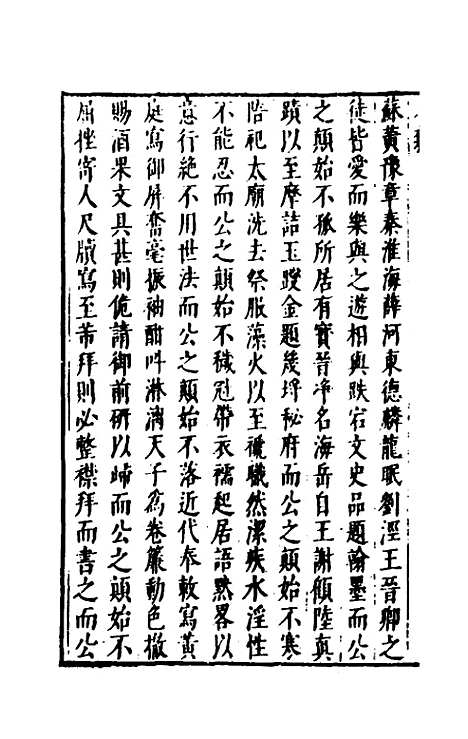 蘇黃豫章秦淮海薛河東德麟龍眠劉涇王晉卿之
徒皆愛而樂與之遊相與跌宕文史品題翰墨而公
之顛始不孤所居有寶晉淨名海岳自王謝顧陸真
蹟以至摩詰玉躞金題幾埒秘府而公之顛始不寒
陪祀太廟洗去祭服藻火以至褫職然潔疾水淫性
不能忍而公之顛始不穢冠帶衣襦起居語默畧以
意行絶不用世法而公之顛始不落近代奉敕寫黃
庭寫御屏奮毫振袖酣呌淋漓天子為卷簾動色撤
賜酒果文具甚則佹請御前研以歸而公之顛始不
屈挫寄人尺牘寫至芾拜則必整襟拜而書之而公